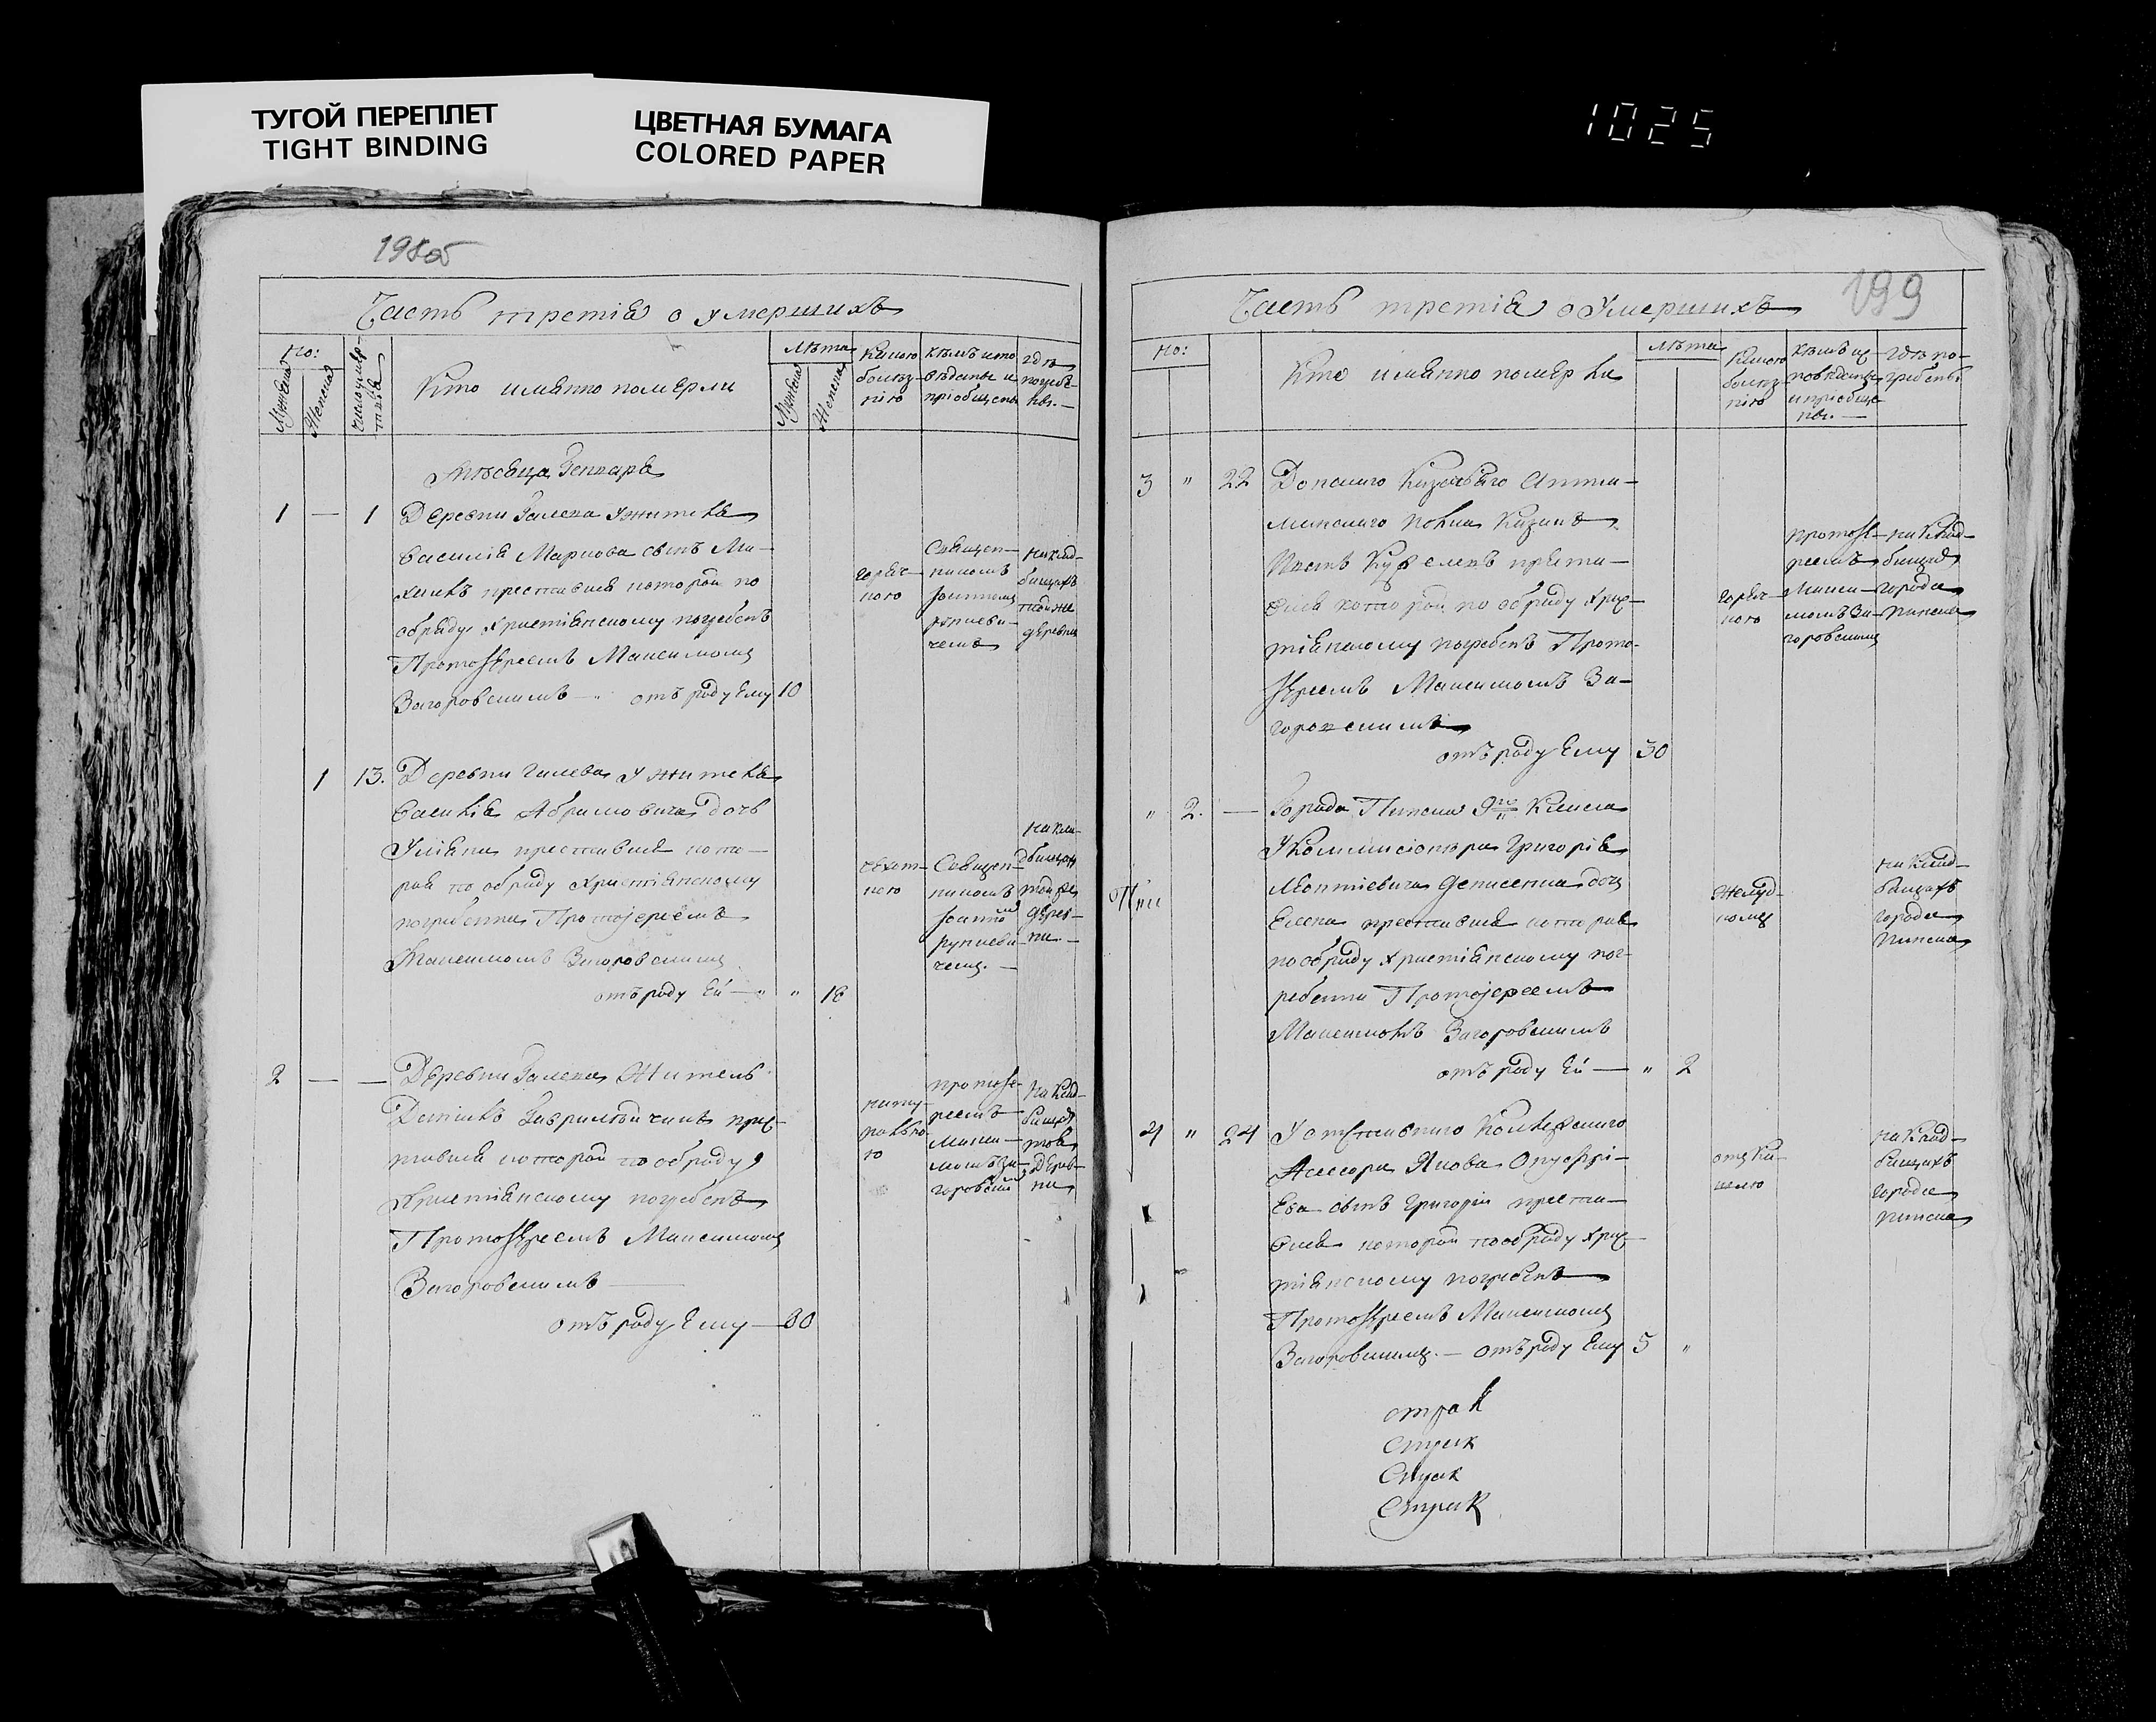 ТУГОЙ ПЕРЕПЛЕТ
TIGHT BINDING
ЦВЕТНАЯ БУМАГА
COLORED PAPER
1025
198об
Часть третія о умершихъ
Но:
Мужеска
Женска
число умер-
Кто имянно померли
Лѣта
Мужеска
Женска
Какою
болѣз-
нію
кѣмъ испо
вѣданы и
пріобщены
гдѣ
погребе-
ны.
Мѣсяца Генваря
1 — 1 Деревни Галева у жителя
Василія Маркова сынъ Ми-
хаилъ преставися которой по
обряду Христіянскому погребенъ
Протоіереемъ Максимомъ
Загоровскимъ — отъ роду Ему 10
горяч-
кою
Священ-
никомъ
Іоанномъ
чемъ
на клад-
бищахъ
той же
деревни
1 13. Деревни Галева у жителя
Василія Абрамовича дочь
Уліяна преставися кото-
рая по обряду Христіянскому
погребенна Протоіереемъ
Максимомъ Загоровскимъ
отъ роду Ей — " " 18
чахот-
кою
Священ-
никомъ
Іоанно
чемъ. —
на кла-
дбищах
той же
дерев-
ни. —
2 — — Деревни Галева Житель
прес-
тавися которой по обряду
Христіянскому погребенъ
Протоіереемъ Максимомъ
Загоровскимъ —
отъ роду Ему — 80
нату-
рально-
ю
протоіе-
реемъ
Макси-
момъ За-
горовским
на клад-
бищах
той
з Дерев-
ни
199
Часть третія о Умершихъ
Но:
Кто имянно померли
Лѣта
Какою
болѣз-
нію
кѣмъ ис-
повѣданы
и пріобще-
ны. —
гдѣ по-
гребены.
3 " 22 Донскаго Казачьяго Атта-
манскаго полка Казакъ
преста-
вися которой по обряду Хрис-
тіянскому погребенъ Прото-
іереемъ Максимомъ За-
горовскимъ
отъ роду Ему 30
горяч-
кою
протоіе-
реемъ
Макси-
момъ За-
горовскимъ
на клад-
бищах
города
Пинска
" 2. — Города Пинска 9го Класса
У Коммисіонера Григорія
Леонтіевича Денисенка дочь
Елена преставися которая
по обряду Христіянскому пог-
ребенна Протоіереемъ
Максимомъ Загоровскимъ
отъ роду Ей — " 2
на клад-
бищахъ
города
Пинска
4 " 24 У отставнаго Коллежскаго
Асесора Якова Онуфрі-
ева сынъ Григорій преста-
вися которой по обряду Хрис-
тіянскому погребенъ
Протоіереемъ Максимомъ
Загоровскимъ. — отъ роду Ему 5 "
от ка-
шлю
на клад-
бищахъ
города
Пинска